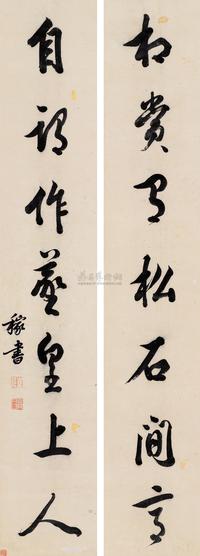 相賞有松石間意
自謂作羲皇上人
稼書